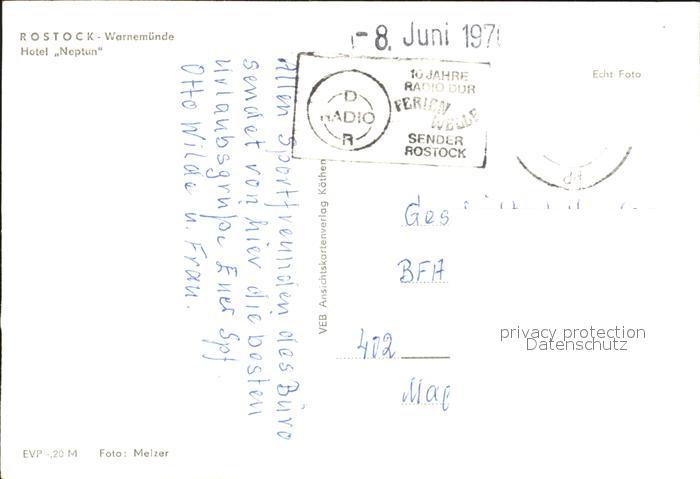 ROSTOCK - Warnemünde
Hotel „Neptun"
-8. Juni 197
10 JAHRE
RADIO DDR
FERIENWELLE
SENDER
ROSTOCK
D
RADIO
R
Echt Foto
Allen Sportfreunden des Büro
sendet von hier die besten
Urlaubsgrüße Euer Spf.
Otto Wilde u. Frau.
VEB Ansichtskartenverlag Köthen
Ges
BFA
402
Mag
privacy protection
Datenschutz
EVP -,20 M Foto: Melzer